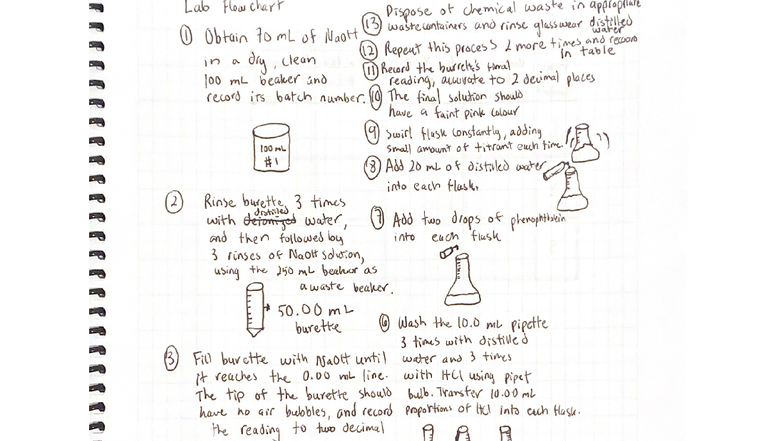 Lab Flowchart
① Obtain 70 mL of NaOH
in a dry, clean
100 mL beaker and
record its batch number.
100 mL
#1
② Rinse burette 3 times
with deionized distilled water,
and then followed by
3 rinses of NaOH solution,
using the 250 mL beaker as
a waste beaker.
50.00 mL
burette
③ Fill burette with NaOH until
it reaches the 0.00 mL line.
The tip of the burette should
have no air bubbles, and record
the reading to two decimal
⑬ Dispose of chemical waste in appropriate
waste containers and rinse glasswear distilled
water
⑫ Repeat this process 2 more times and record
in table
⑪ Record the burette's final
reading, accurate to 2 decimal places
⑩ The final solution should
have a faint pink colour
⑨ Swirl flask constantly, adding
small amount of titrant each time.
⑧ Add 20 mL of distilled water
into each flask.
⑦ Add two drops of phenophthalein
into each flask
⑥ Wash the 10.0 mL pipette
3 times with distilled
water and 3 times
with HCl using pipet
bulb. Transfer 10.00 mL
proportions of HCl into each flask.